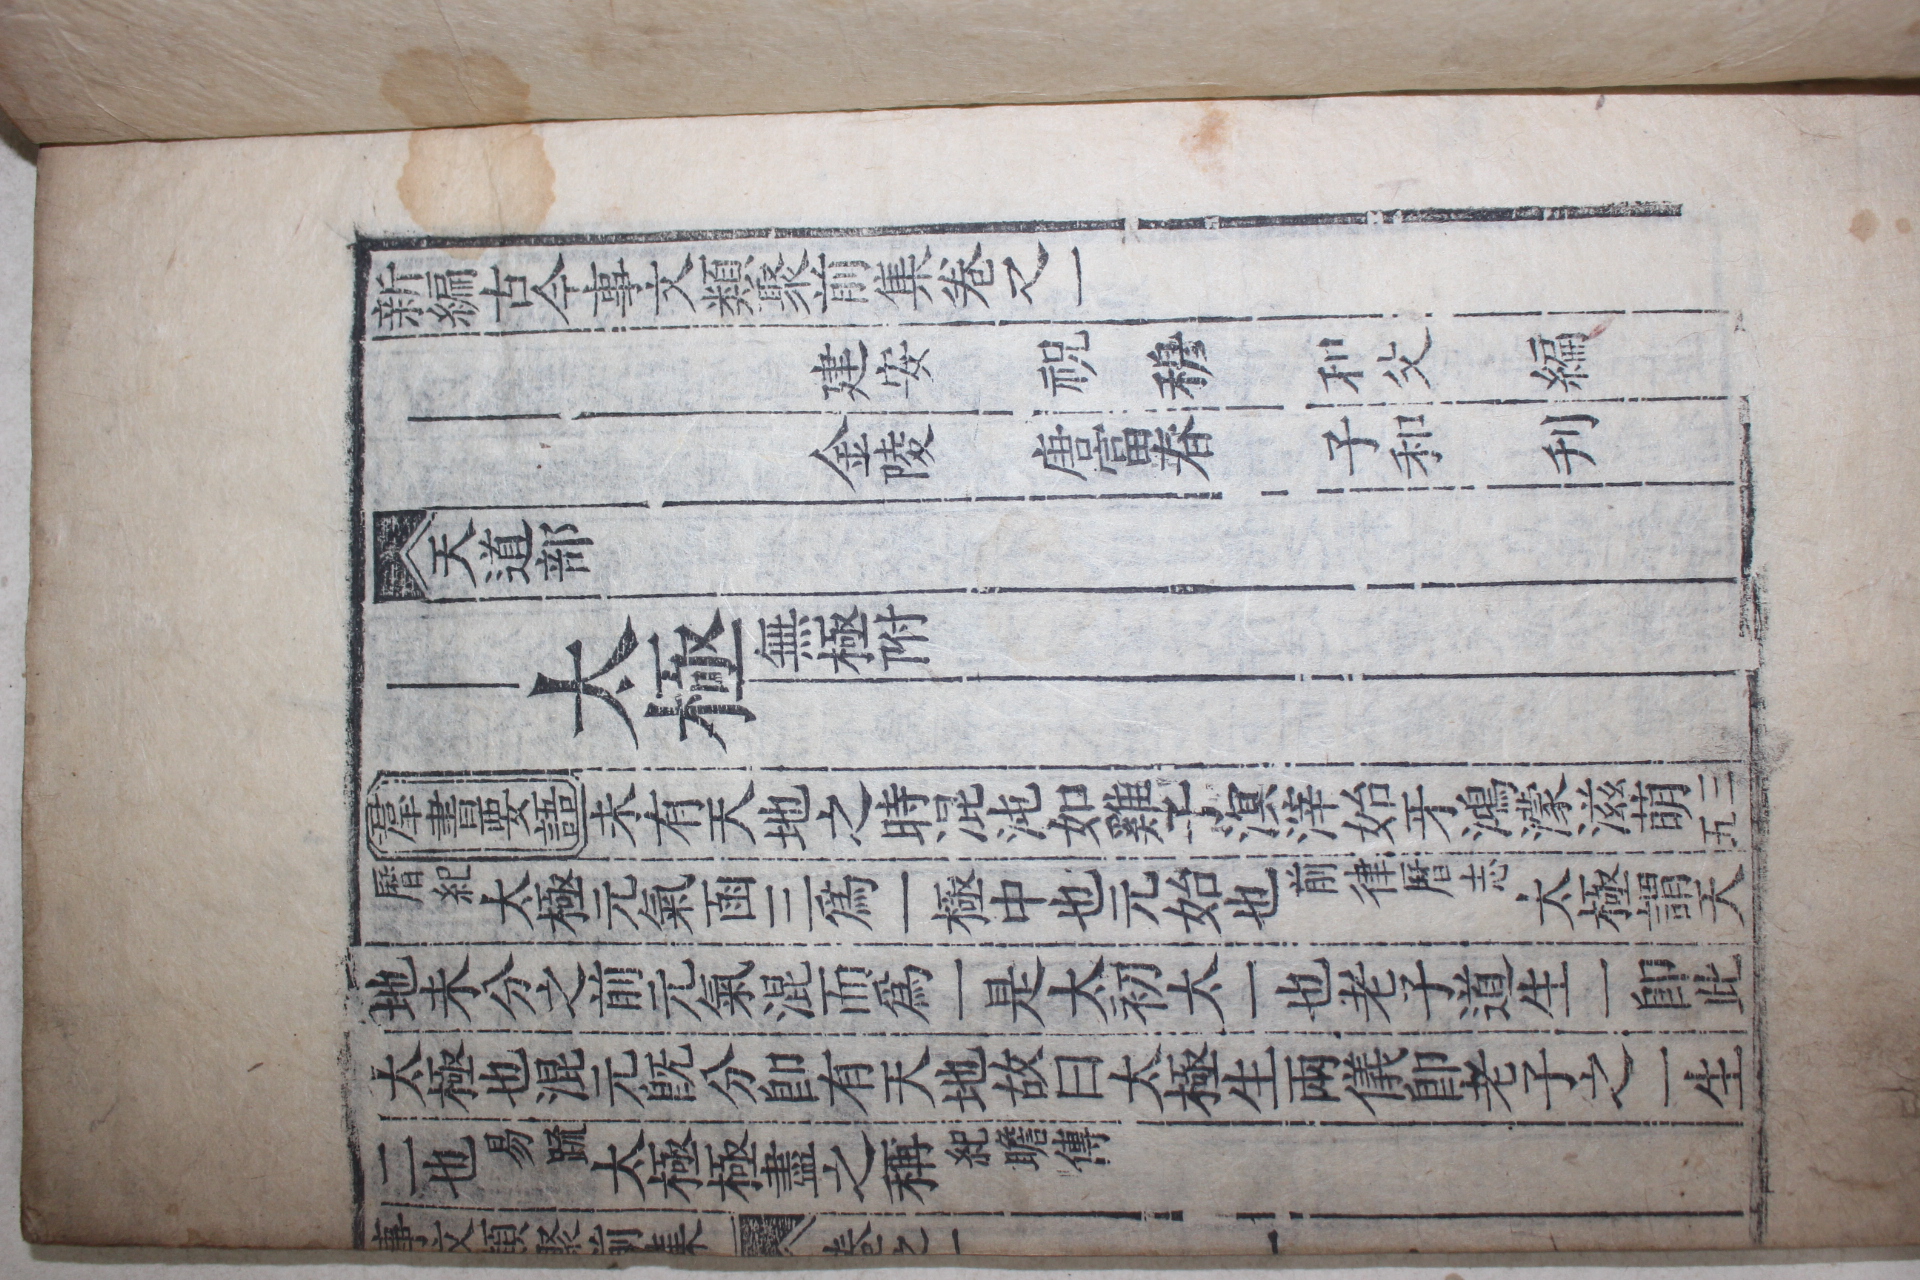 新編古今事文類聚前集卷之一
建安 祝 穆 和父 編
金陵 唐富春 子和 刋
天道部
太極無極附
羣書要語未有天地之時混沌如雞子溟涬始牙鴻濛滋萌三五
曆紀太極元氣函三爲一極中也元始也前律曆志太極謂天
地未分之前元氣混而爲一是太初太一也老子道生一即此
太極也混元旣分即有天地故曰太極生兩儀即老子之一生
二也易䟽太極極盡之稱紀瞻傳
事文類聚前集 卷之一 一